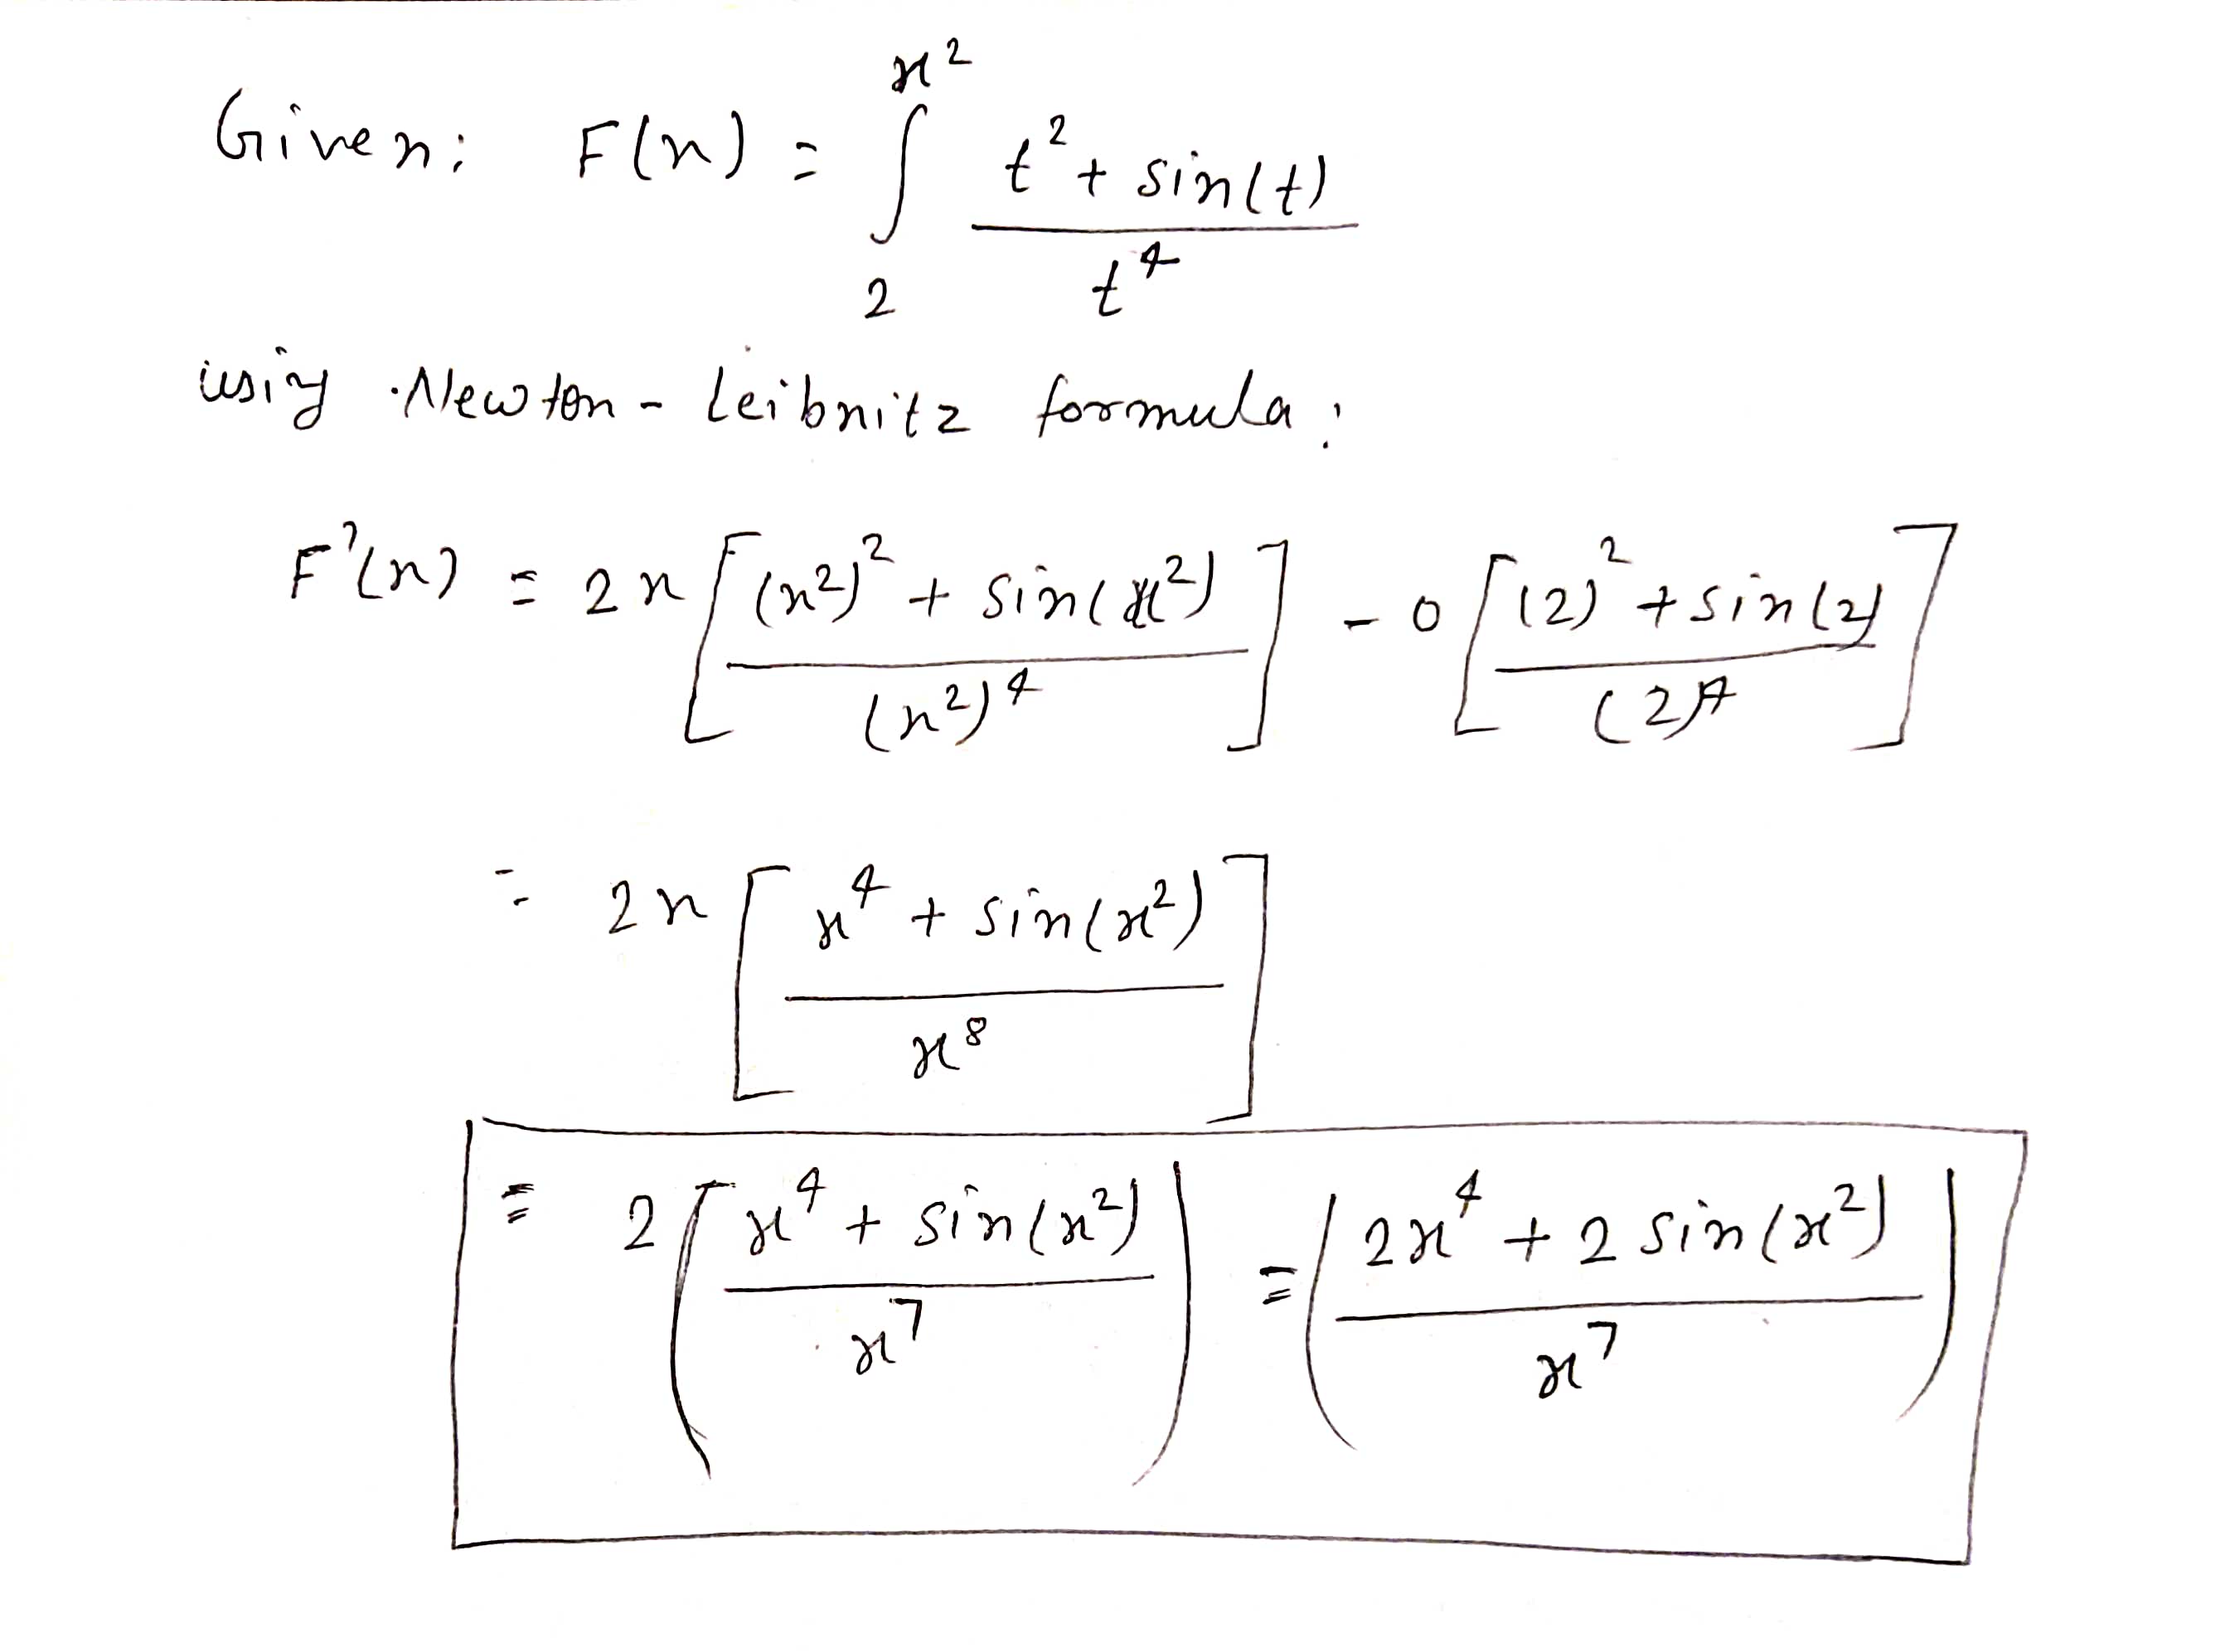 Given: F(x) = ∫₂^{x²} (t² + sin(t)) / t⁴
using Newton-Leibnitz formula:
F'(x) = 2x [((x²)² + sin(x²)) / (x²)⁴] - 0 [((2)² + sin(2)) / (2)⁴]
= 2x [(x⁴ + sin(x²)) / x⁸]
= 2 ((x⁴ + sin(x²)) / x⁷) = ((2x⁴ + 2 sin(x²)) / x⁷)